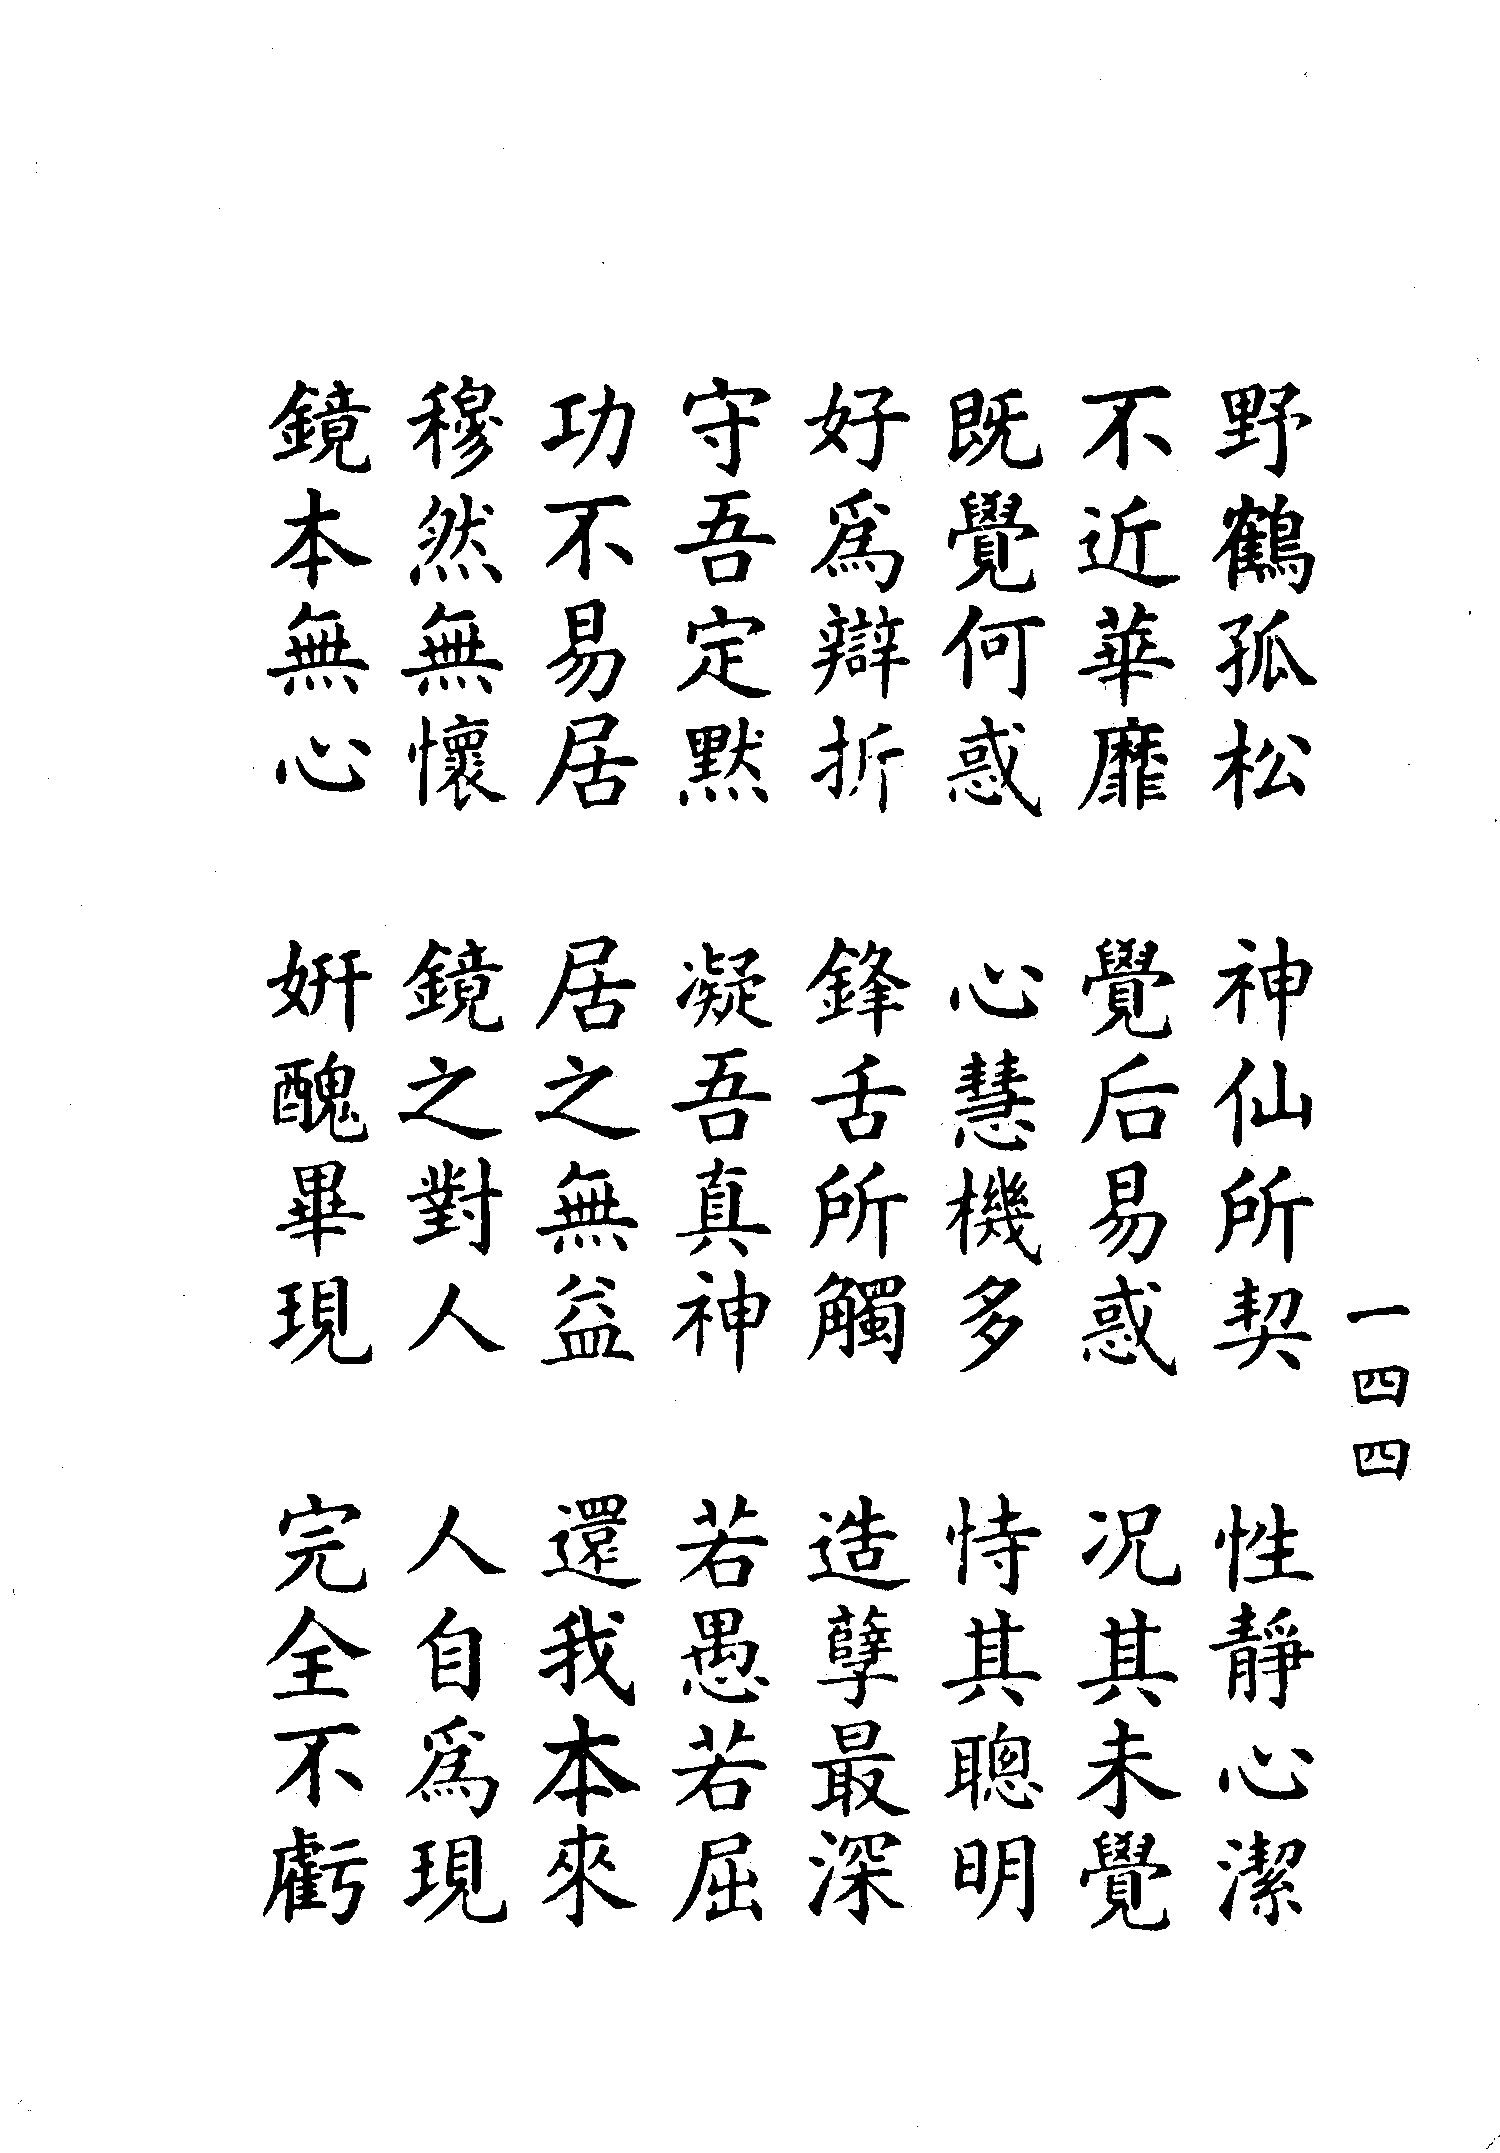 一四四
野鶴孤松 神仙所契 性靜心潔
不近華靡 覺后易惑 况其未覺
既覺何惑 心慧機多 恃其聰明
好爲辯折 鋒舌所觸 造孽最深
守吾定默 凝吾真神 若愚若屈
功不易居 居之無益 還我本來
穆然無懷 鏡之對人 人自爲現
鏡本無心 妍醜畢現 完全不虧